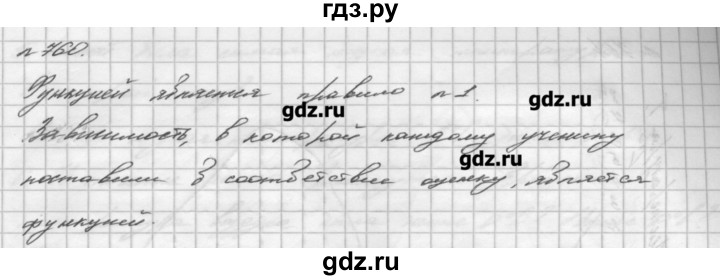 гдз.ру
n 760.
Функцией является правило n 1.
гдз.ру
гдз.ру
Зависимость, в которой каждому ученику
гдз.ру
поставили в соответствии оценку, является
функцией.
гдз.ру